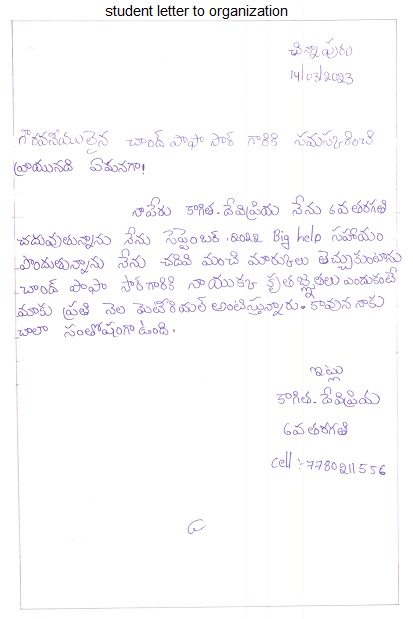 student letter to organization
చిన్నాపురం
14/03/2023
గౌరవనీయులైన చాంద్ పాషా సార్ గారికి నమస్కరించి
వ్రాయునది ఏమనగా!
నాపేరు కాగిత. దేవిప్రియ నేను 6వ తరగతి
చదువుతున్నాను నేను సెప్టెంబర్ .2022 Big help సహాయం
పొందుతున్నాను నేను చదివి మంచి మారుకులు తెచ్చుకుంటాను
చాంద్ పాషా సార్ గారికి నా యొక్క కృతజ్ఞతలు ఎందుకంటే
మాకు ప్రతి నెల మెటీరియల్ అంటిస్తున్నారు. కావున నాకు
చాలా సంతోషంగా ఉంది.
ఇట్లు
కాగిత. దేవిప్రియ
6వ తరగతి
cell :- 7780211556